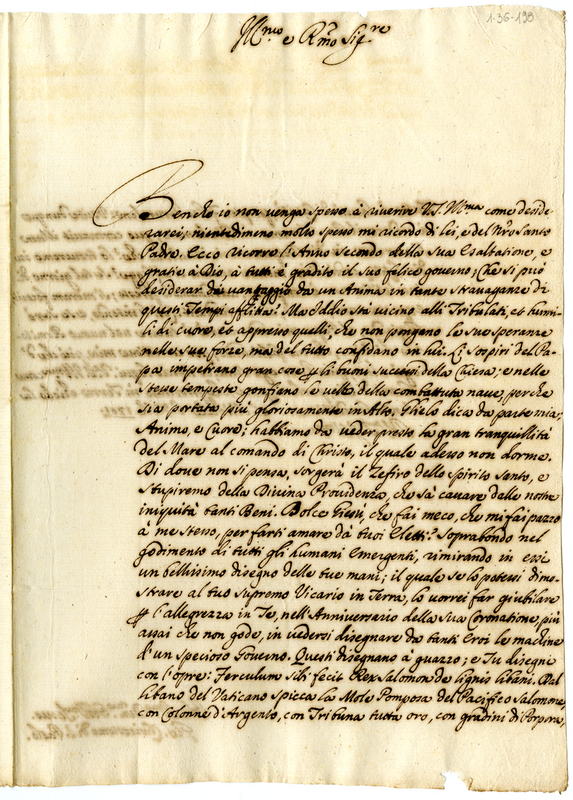 1-36-198
Ill.mo e R.mo Sig.re
Benche io non venga spesso à riverire V.S. Ill.ma come deside-
rarei; nientedimeno molto spesso mi ricordo di lei, e del N.ro Santo
Padre. Ecco ricorre l'Anno secondo della sua Esaltatione, e
gratie à Dio, à tutti è gradito il suo felice governo; Che si può
desiderar di vantaggio da un Anima in tante stravaganze di
questi Tempi afflitta? Ma Iddio stà vicino alli Tribulati, et humi-
li di cuore, et appresso quelli, che non pongono le sue speranze
nelle sue forze, ma del tutto confidano in lui. Li sospiri del Pa-
pa impetrano gran cose p li buoni successi della Chiesa; e nelle
stesse tempeste gonfiano le velle della combattuta nave, perche
sia portata più gloriosamente in Alto. Glielo dica da parte mia;
Animo, e Cuore; habbiamo da veder presto la gran tranquillità
del Mare al comando di Christo, il quale adesso non dorme.
Di dove non si pensa, sorgerà il Zefiro dello spirito santo, e
stupiremo della Divina Providenza, che sà cavare dalle nostre
iniquità tanti Beni. Dolce Giesù, che fai meco, che mi fai pazzo
à me stesso, per farti amare dà tuoi Eletti? Soprabondo nel
godimento di tutti gli humani Emergenti, rimirando in essi
un bellissimo disegno delle tue mani; il quale se lo potessi dimo-
strare al tuo supremo Vicario in Terra, lo vorrei far giubilare
p l'allegrezza in Te, nell'Anniversario della sua Coronatione, più
assai che non gode, in vedersi disegnare da tanti Eroi le machine
d'un specioso Governo. Questi disegnano à guazzo; e Tu disegni
con l'opre: Ferculum sibi fecit Rex Salomon de lignis libani. Dal
libano del Vaticano spicca la Mole Pomposa del Pacifico Salomone,
con Colonne d'Argento, con Tribuna tutta oro, con gradini di Porpora,